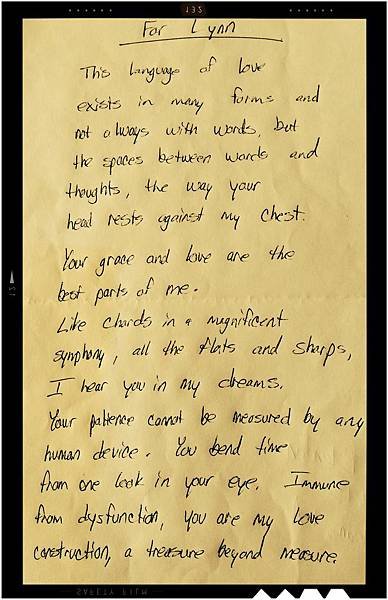 132
For Lynn
This language of love
exists in many forms and
not always with words, but
the spaces between words and
thoughts, the way your
head rests against my chest.
Your grace and love are the
best parts of me.
Like chords in a magnificent
symphony, all the flats and sharps,
I hear you in my dreams.
Your patience cannot be measured by any
human device. You bend time
from one look in your eye. Immune
from dysfunction, you are my love
construction, a treasure beyond measure.
12
SAFETY FILM